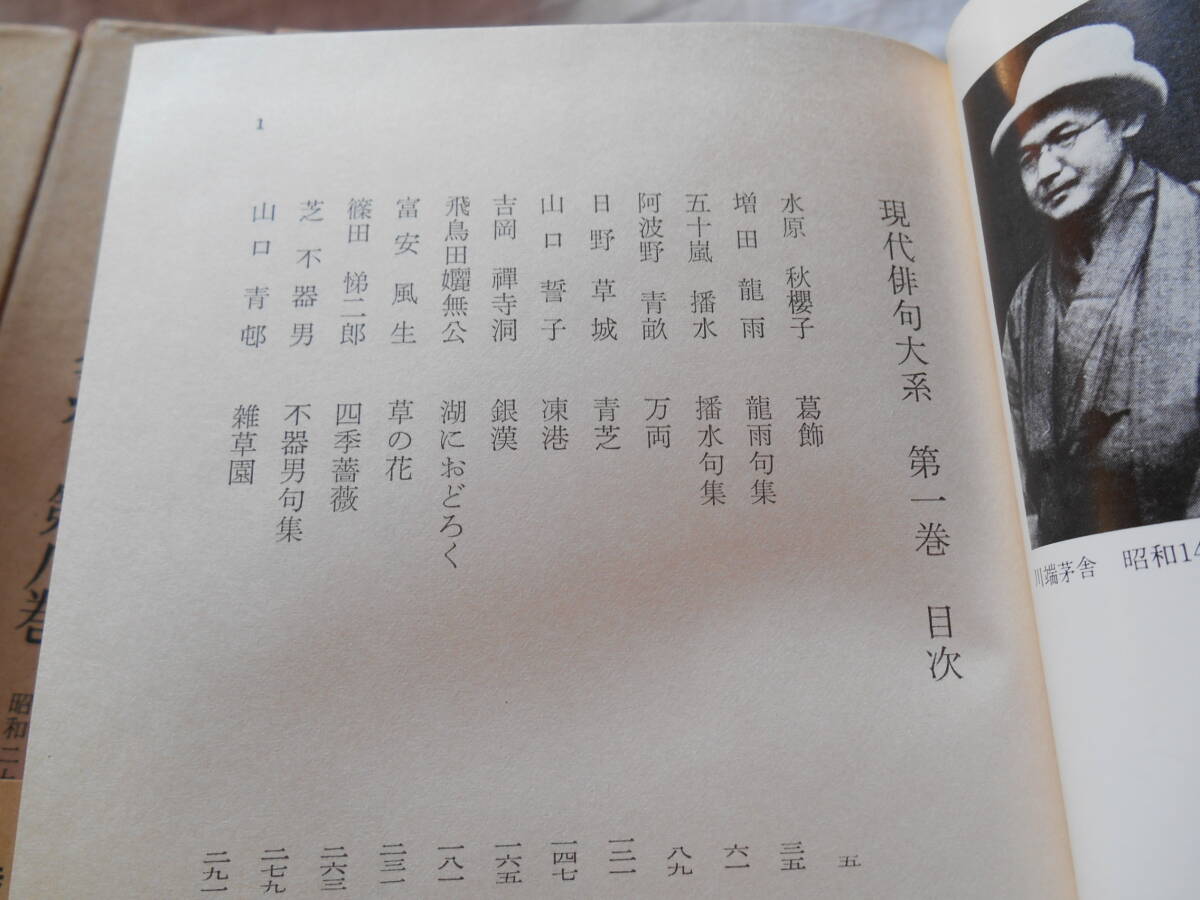 川端茅舎 昭和14
現代俳句大系 第一巻 目次
水原 秋櫻子 葛飾 五
増田 龍雨 龍雨句集 三五
五十嵐 播水 播水句集 六一
阿波野 青畝 万両 八九
日野 草城 青芝 一二一
山口 誓子 凍港 一四七
吉岡 禪寺洞 銀漢 一六五
飛鳥田孋無公 湖におどろく 一八一
富安 風生 草の花 二三一
篠田 悌二郎 四季薔薇 二六三
芝 不器男 不器男句集 二七九
山口 青邨 雑草園 二九一
1
第八巻
昭和二十